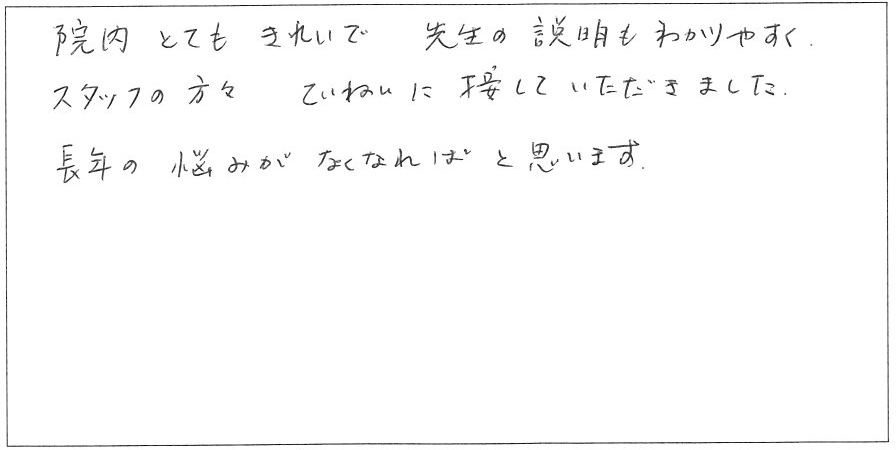 院内 とても きれいで 先生の 説明も わかりやすく.
スタッフの 方々 ていねいに 接して いただきました.
長年の 悩みが なくなれば と 思います.